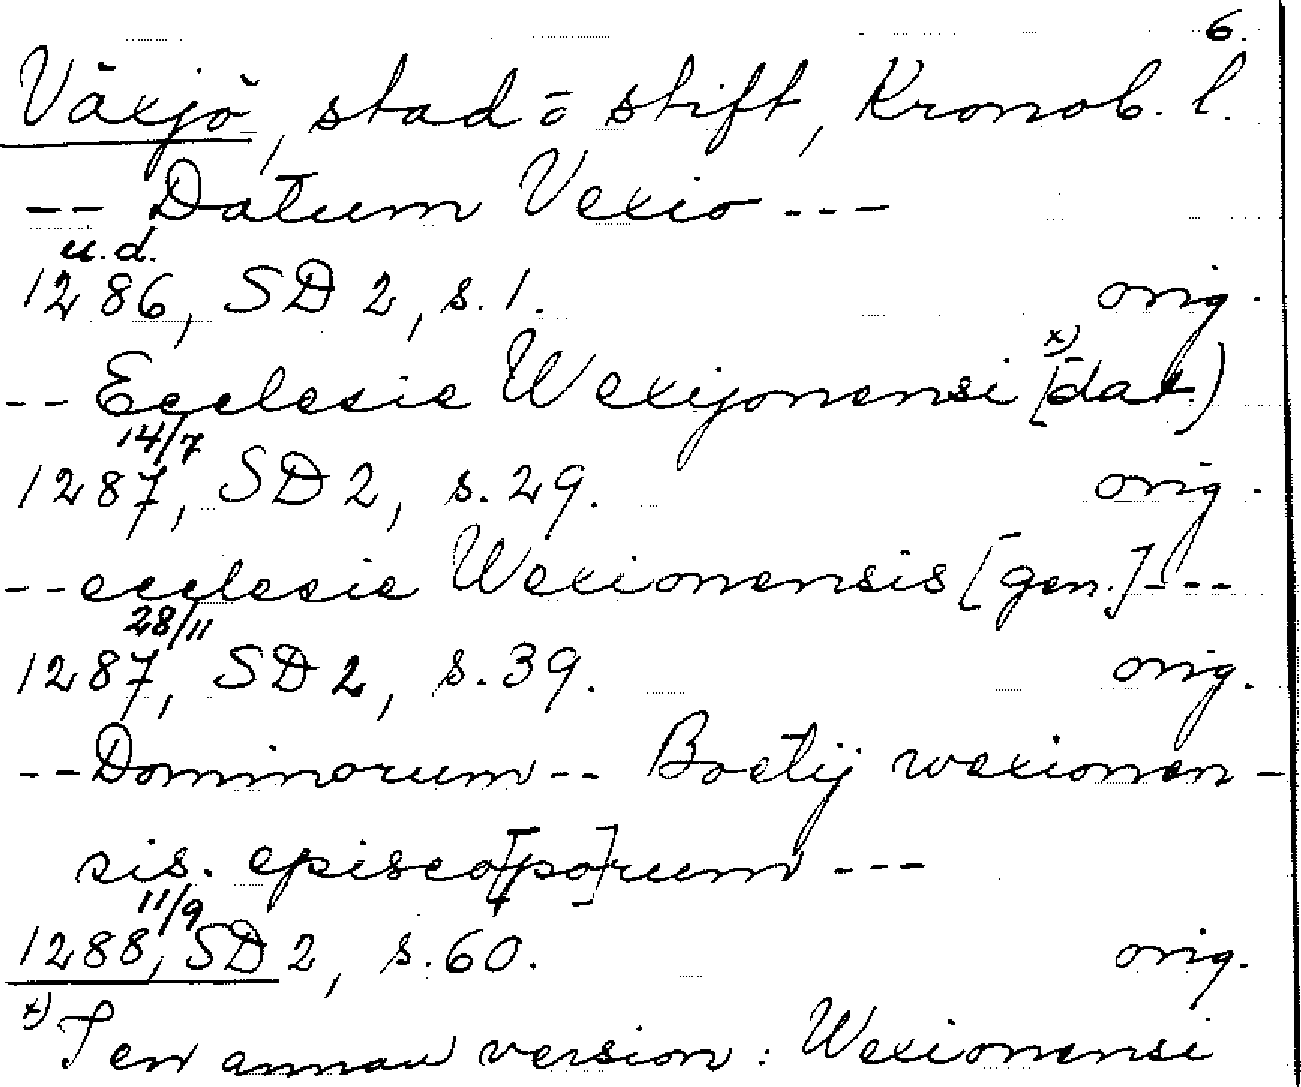 6.
Växjö, stad o stift, Kronob. l.
-- Datum Vexio ---
u.d.
1286, SD 2, s. 1. orig.
-- Ecclesie Wexijonensi x) (dat.)
14/7
1287, SD 2, s. 29. orig.
-- ecclesie Wexionensis [gen.] ---
28/11
1287, SD 2, s. 39. orig.
-- Dominorum -- Boetij wexionen-
sis. episco[po]rum ---
11/9
1288, SD 2, s. 60. orig.
x) I en annan version: Wexionensi